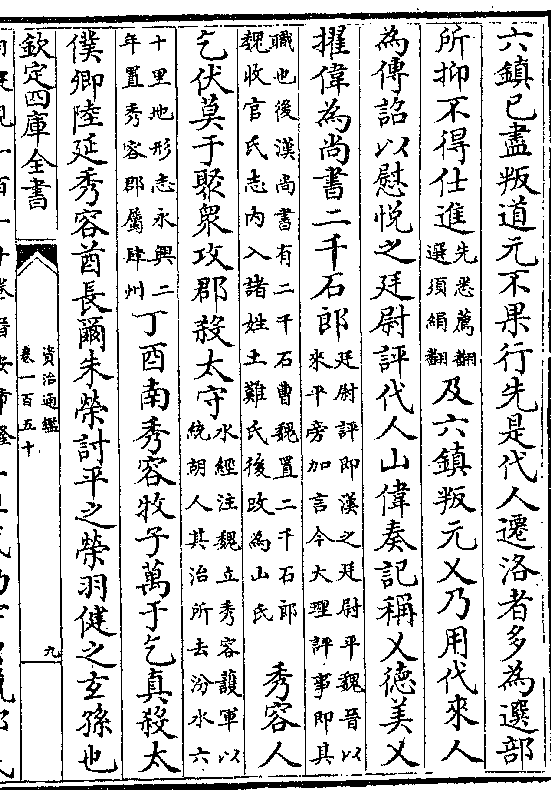 六鎮已盡叛道元不果行先是代人遷洛者多為選部
所抑不得仕進先悉薦翻選須絹翻及六鎮叛元乂乃用代來人
為傳詔以慰悦之廷尉評代人山偉奏記稱乂德美乂
擢偉為尚書二千石郎廷尉評即漢之廷尉平魏晉以來平旁加言今大理評事即其
職也後漢尚書有二千石曹魏置二千石郎魏收官氏志内入諸姓土難氏後改為山氏秀容人
乞伏莫于聚衆攻郡殺太守水經注魏立秀容護軍以統胡人其治所去汾水六
十里地形志永興二年置秀容郡屬肆州丁酉南秀容牧子萬于乞真殺太
僕卿陸延秀容酋長爾朱榮討平之榮羽健之玄孫也
欽定四庫全書
資治通鑑
卷一百五十
九